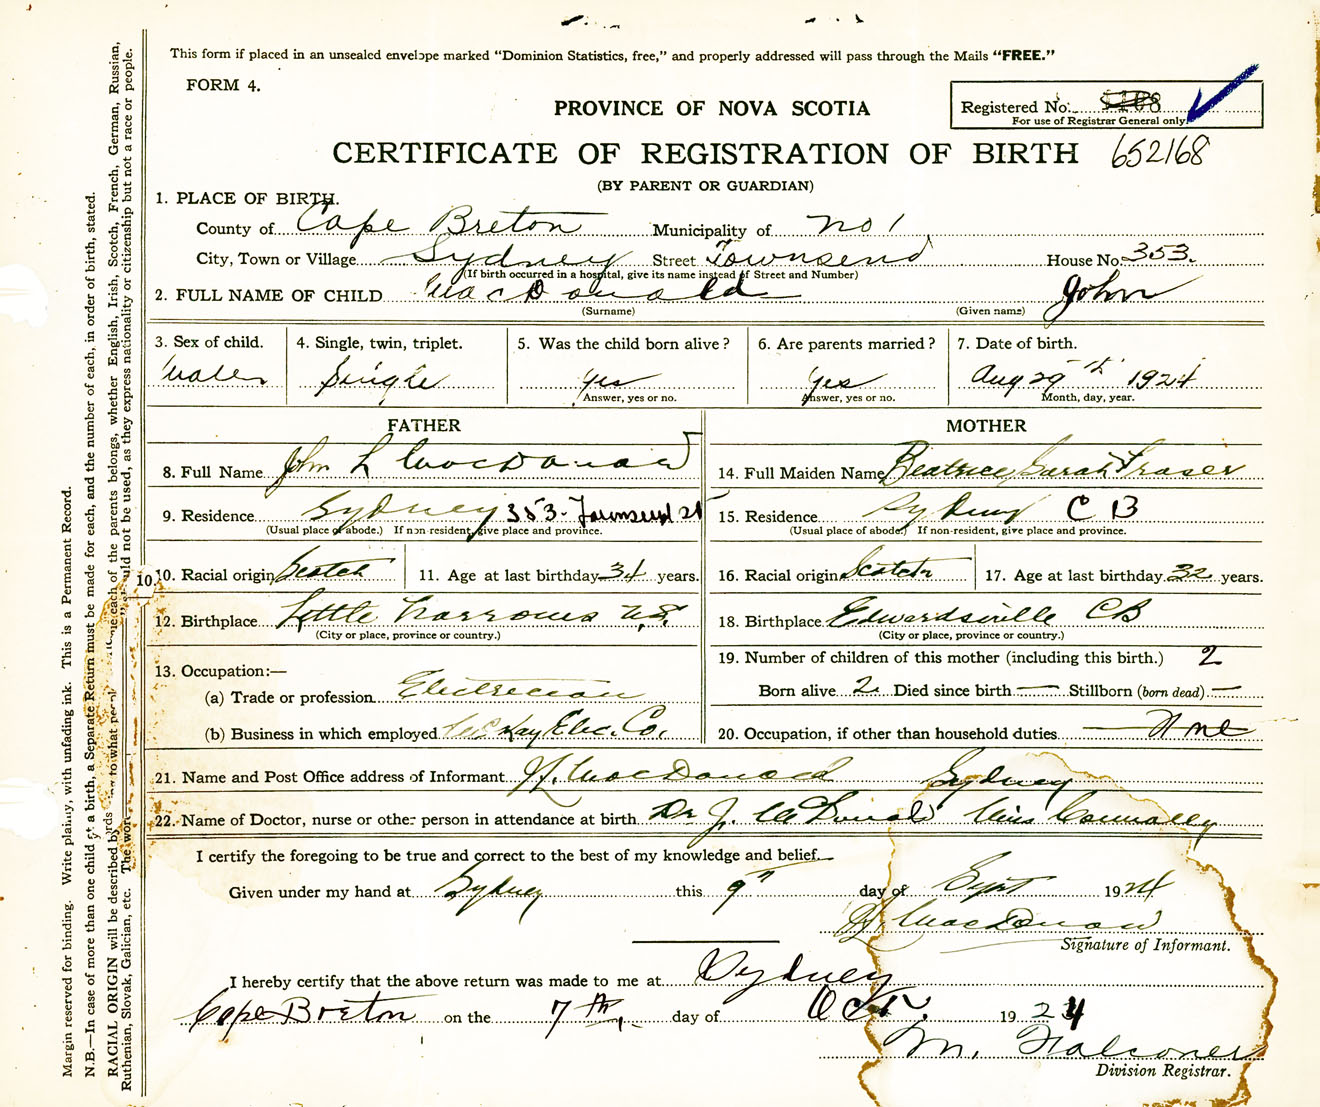 This form if placed in an unsealed envelope marked "Dominion Statistics, free," and properly addressed will pass through the Mails "FREE."
FORM 4.
PROVINCE OF NOVA SCOTIA
Registered No.
For use of Registrar General only.
CERTIFICATE OF REGISTRATION OF BIRTH 652168
(BY PARENT OR GUARDIAN)
1. PLACE OF BIRTH.
County of Cape Breton Municipality of No 1
City, Town or Village Sydney Street Townsend House No. 353.
(If birth occurred in a hospital, give its name instead of Street and Number)
2. FULL NAME OF CHILD MacDonald John
(Surname) (Given name)
3. Sex of child. 4. Single, twin, triplet. 5. Was the child born alive? 6. Are parents married? 7. Date of birth.
Male Single Yes Yes Aug 29th 1924
Answer, yes or no. Answer, yes or no. Month, day, year.
FATHER MOTHER
8. Full Name John L MacDonald 14. Full Maiden Name Beatrice Sarah Fraser
9. Residence Sydney 353 - Townsend St 15. Residence Sydney C B
(Usual place of abode.) If non-resident, give place and province. (Usual place of abode.) If non-resident, give place and province.
10. 10. Racial origin Scotch 11. Age at last birthday 34 years. 16. Racial origin Scotch 17. Age at last birthday 32 years.
12. Birthplace Little Narrows N.S. 18. Birthplace Edwardsville CB
(City or place, province or country.) (City or place, province or country.)
13. Occupation:— 19. Number of children of this mother (including this birth.) 2
(a) Trade or profession Electrician Born alive 2 Died since birth — Stillborn (born dead). —
(b) Business in which employed Kay Elec. Co. 20. Occupation, if other than household duties None
21. Name and Post Office address of Informant MacDonald Sydney
22. Name of Doctor, nurse or other person in attendance at birth Dr J. McDonald Miss Connolly
I certify the foregoing to be true and correct to the best of my knowledge and belief.
Given under my hand at Sydney this 9th day of Sept 1924
MacDonald
Signature of Informant.
I hereby certify that the above return was made to me at Sydney
Cape Breton on the 7th day of Oct. 1924
M. Falconer
Division Registrar.
Margin reserved for binding. Write plainly, with unfading ink. This is a Permanent Record.
N.B.—In case of more than one child at a birth, a Separate Return must be made for each, and the number of each, in order of birth, stated.
RACIAL ORIGIN will be described by words to what people each of the parents belongs, whether English, Irish, Scotch, French, German, Russian,
Ruthenian, Slovak, Galician, etc. The should not be used, as they express nationality or citizenship but not a race or people.